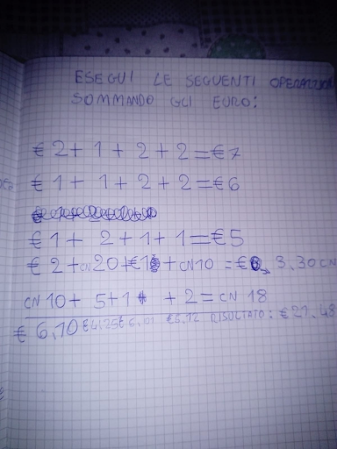 ESEGUI LE SEGUENTI OPERAZIONI
SOMMANDO GLI EURO:
€ 2+ 1 + 2 + 2 = € 7
€ 1 + 1 + 2 + 2 = € 6
€ 1 + 2 + 1 + 1 = € 5
€ 2 + CN 20 + € 1 + CN 10 = € 3.30 CN
CN 10 + 5 + 1 + 2 = CN 18
€ 6,10 RISULTATO: € 21.48